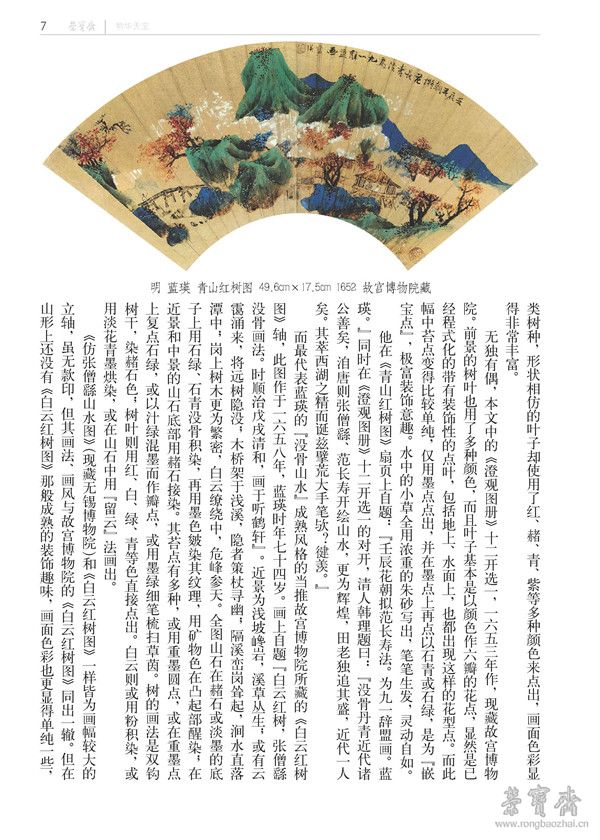 7
荣宝斋
明 蓝瑛 青山红树图 49.6cm×17.5cm 1652 故宫博物院藏
类树种，形状相仿的叶子却使用了红、赭、青、紫等多种颜色来点出，画面色彩显
得非常丰富。
无独有偶，本文中的《澄观图册》十二开选一，一六五三年作，现藏故宫博物
院。前景的树叶也用了多种颜色，而且叶子基本是以颜色作六瓣的花点，显然是已
经程式化的带有装饰性的点叶，包括地上、水面上，也都出现这样的花型点。而此
幅中苔点变得比较单纯，仅用墨点点出，并在墨点上再点以石青或石绿，是为『嵌
宝点』，极富装饰意趣。水中的小草全用浓重的朱砂写出，笔笔生发，灵动自如。
他在《青山红树图》扇页上自题：『壬辰花朝拟范长寿法。为九一辞盟画。蓝
瑛。』同时在《澄观图册》十二开选一的对开，清人韩理题曰：『没骨丹青近代诸
公善矣，洎唐则张僧繇、范长寿开绘山水，更为辉煌，田老独追其盛，近代一人
矣。其萃西湖之精而诞兹擘荒大手笔欤？健羡。』
而最代表蓝瑛的『没骨山水』成熟风格的当推故宫博物院所藏的《白云红树
图》轴，此图作于一六五八年，蓝瑛时年七十四岁。画上自题『白云红树，张僧繇
没骨画法。时顺治戊戌清和，画于听鹤轩』。近景为浅坡巉岩，溪草丛生；或有云
霭涌来，将远树隐没；木桥架于浅溪，隐者策杖寻幽；隔溪峦岗耸起，涧水直落
潭中；岗上树木更为繁密，白云缭绕中，危峰参天。全图山石在赭石或淡墨的底
子上用石绿、石青没骨积染，再用墨色皴染其纹理，用矿物色在凸起部醒染；在
近景和中景的山石底部用赭石接染。其苔点有多种，或用重墨圆点，或在重墨点
上复点石绿，或以汁绿混墨而作瓣点，或用墨绿细笔梳扫草茵。树的画法是双钩
树干，染赭石色，树叶则用红、白、绿、青等色直接点出。白云则或用粉积染，或
用淡花青墨烘染，或在山石中用『留云』法画出。
《仿张僧繇山水图》（现藏无锡博物院）和《白云红树图》一样皆为画幅较大的
立轴，虽无款印，但其画法、画风与故宫博物院的《白云红树图》同出一辙。但在
山形上还没有《白云红树图》那般成熟的装饰趣味，画面色彩也更显得单纯一些，
荣宝斋
www.rongbaozhai.cn